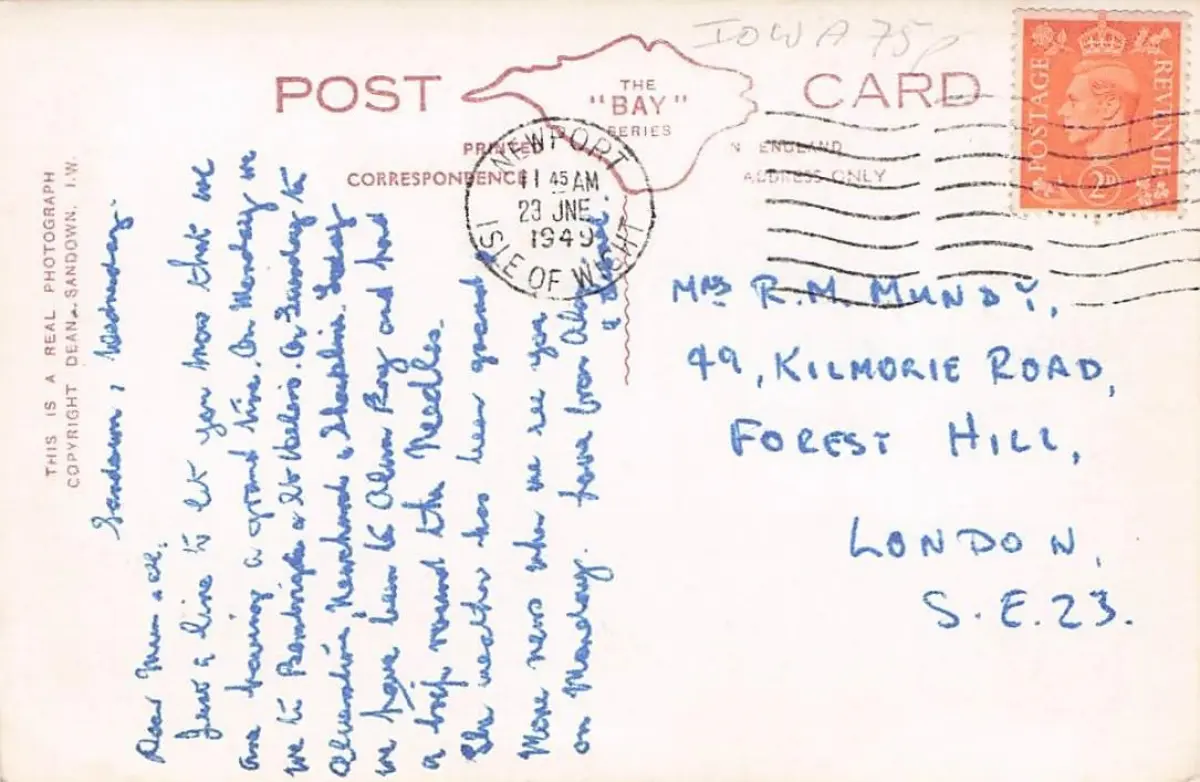 IOWA 75p
POST CARD
THE
"BAY"
SERIES
PRINTED IN ENGLAND
CORRESPONDENCE ADDRESS ONLY
POSTAGE REVENUE
2D
NEWPORT
11 45 AM
23 JNE
1949
ISLE OF WIGHT
THIS IS A REAL PHOTOGRAPH
COPYRIGHT DEAN. SANDOWN, I.W.
Sandown, Wednesday.
Dear Mum & all,
Just a line to let you know that we
are having a grand time. On Monday we
we to Bembridge & St Helens. On Tuesday to
Alverstone, Newchurch & Shanklin. Today
we have been to Alum Bay and had
a trip round the Needles.
The weather has been grand
More news when we see you
on Monday. fond love
MRS R.M. MUNDY,
49, KILMORIE ROAD,
FOREST HILL,
LONDON,
S.E.23.